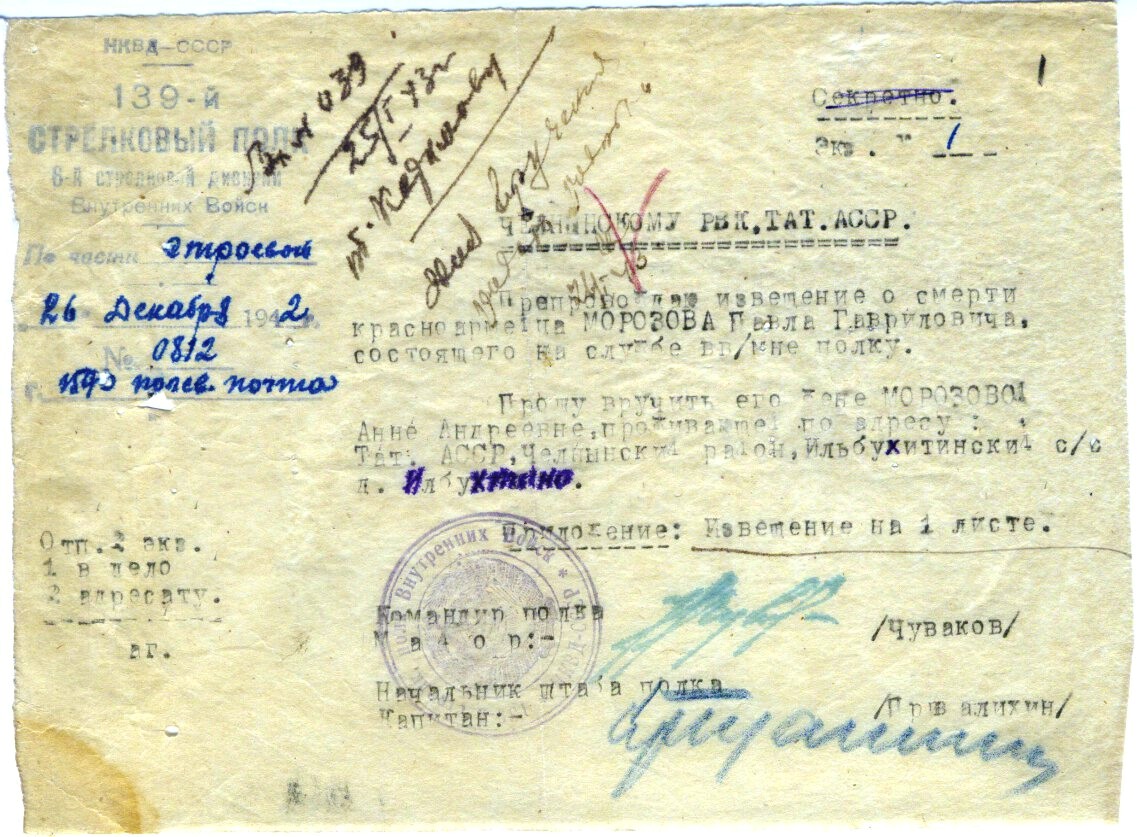 НКВД-СССР
139-й
СТРЕЛКОВЫЙ ПОЛК
6-й стрелковой дивизии
Внутренних Войск
По части Строевой
26 Декабря 1942 г.
№ 0812
1590 полев. почта
Вх N 039
25/I-43г
т.
1
Секретно.
Экз. N 1
ЧЕЛНИНСКОМУ РВК,ТАТ.АССР.
Препровождаю извещение о смерти
красноармейца МОРОЗОВА Павла Гавриловича,
состоящего на службе вв/мне полку.
Прошу вручить его жене МОРОЗОВОЙ
Анне Андреевне,проживающей по адресу:
Тат. АССР,Челнынский район,Ильбухитински с/с
д. Илбухтино.
Приложение: Извещение на 1 листе.
Отп.2 экз.
1 в дело
2 адресату.
аг.
Внутренних Войск * НКВД-СССР
Командир полка
Майор:- /Чуваков/
Начальник штаба полка
Капитан:- /Привалихин/